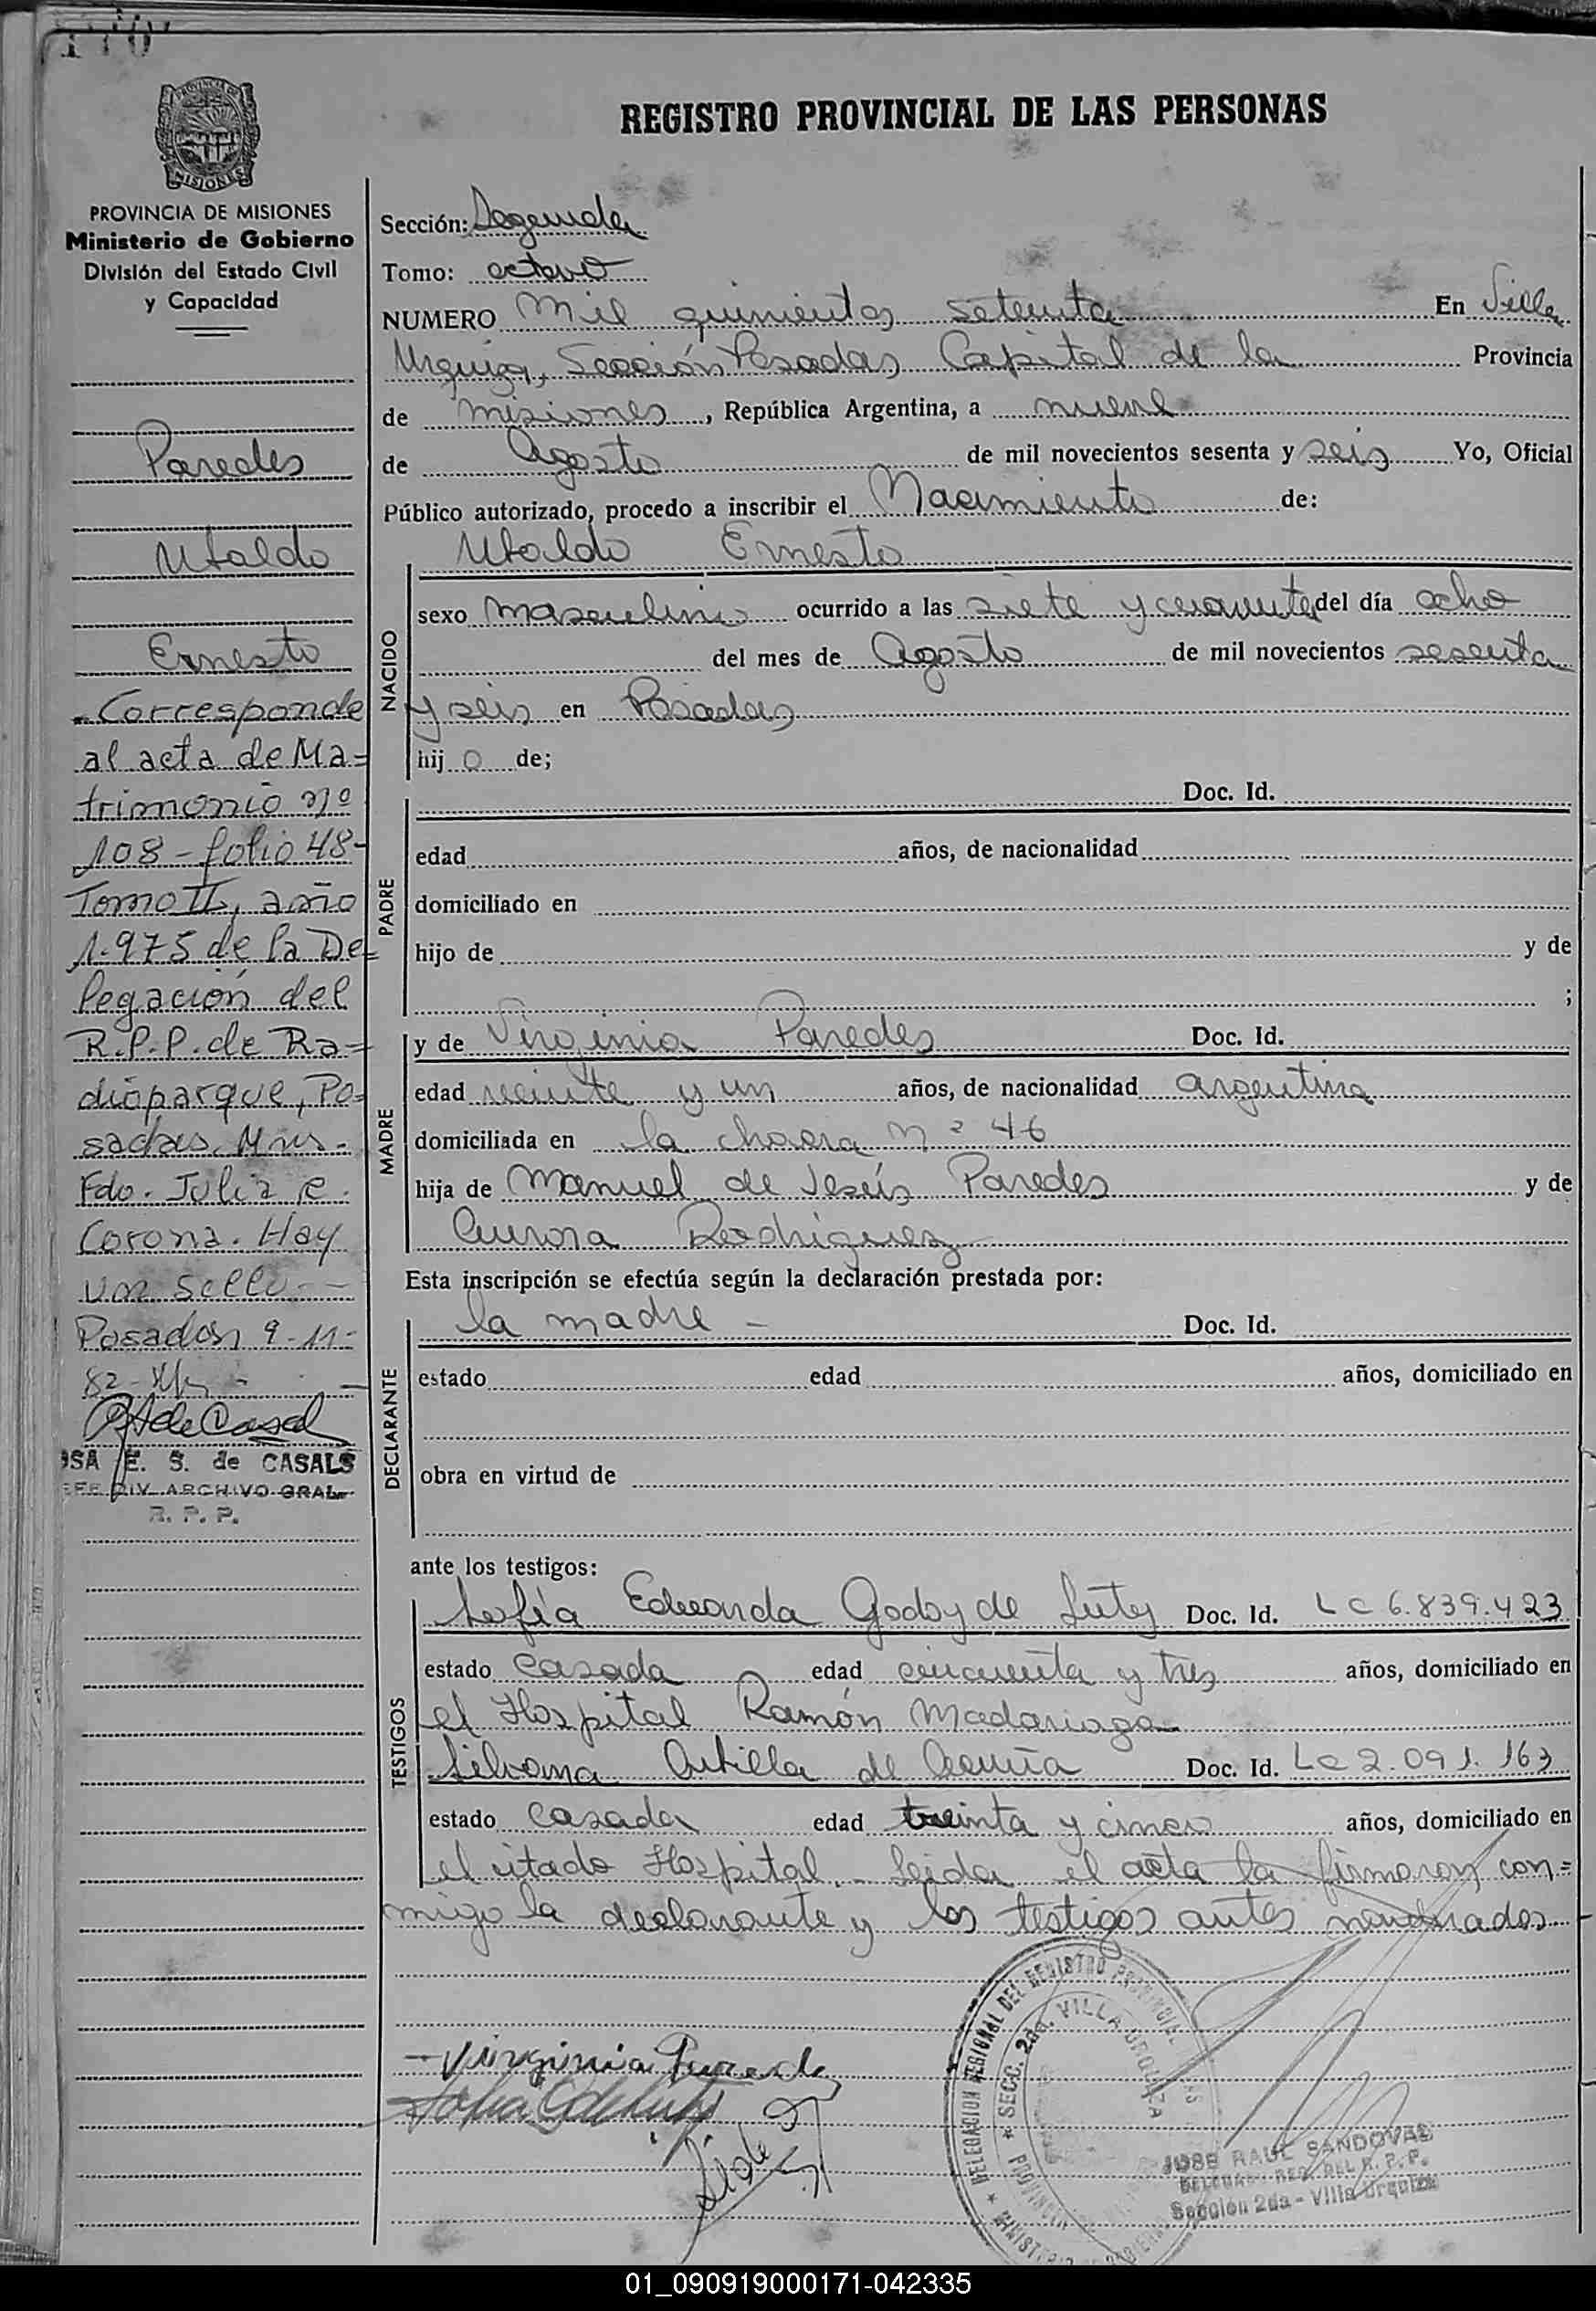 REGISTRO PROVINCIAL DE LAS PERSONAS
MISIONES
PROVINCIA DE MISIONES
Ministerio de Gobierno
División del Estado Civil
y Capacidad
Paredes
Ubaldo
Ernesto
Corresponde
al acta de Ma=
trimonio nº
108 - folio 48-
Tomo II, año
1.975 de la De=
legación del
R.P.P. de Ra=
dioparque, Po=
sadas. Mns.
Fdo. Julia R.
Corona. Hay
un sello.-
Posadas 9-11-
82-
E. S. de CASALS
DIV. ARCHIVO GRAL.
R. P. P.
Sección: Segunda
Tomo: octavo
NUMERO Mil quinientos setenta En Villa
Urquiza, Sección Posadas, Capital de la Provincia
de misiones, República Argentina, a nueve
de Agosto de mil novecientos sesenta y seis Yo, Oficial
Público autorizado, procedo a inscribir el Nacimiento de:
Ubaldo Ernesto
NACIDO
sexo masculino ocurrido a las siete y cincuenta del día ocho
del mes de Agosto de mil novecientos sesenta
y seis en Posadas
hijo de;
PADRE
Doc. Id.
edad años, de nacionalidad
domiciliado en
hijo de y de
;
MADRE
y de Virginia Paredes Doc. Id.
edad veinte y un años, de nacionalidad argentina
domiciliada en la chacra nº 46
hija de Manuel de Jesús Paredes y de
Aurora Rodriguez
Esta inscripción se efectúa según la declaración prestada por:
DECLARANTE
la madre - Doc. Id.
estado edad años, domiciliado en
obra en virtud de
ante los testigos:
TESTIGOS
Sofía Eduarda Godoy de Doc. Id. LC 6.839.423
estado casada edad cincuenta y tres años, domiciliado en
el Hospital Ramón Madariaga
Silvana de Doc. Id. Lc 2.091.163
estado casada edad treinta y cinco años, domiciliado en
el citado Hospital.- Leida el acta la firmaron con=
migo la declarante y los testigos antes nombrados
Virginia Paredes
DELEGACION REGIONAL DEL REGISTRO PROVINCIAL
SECC. 2da. VILLA URQUIZA
JOSE RAUL SANDOVAL
DELEGADO REG. DEL R. P. P.
Sección 2da - Villa Urquiza
01_090919000171-042335